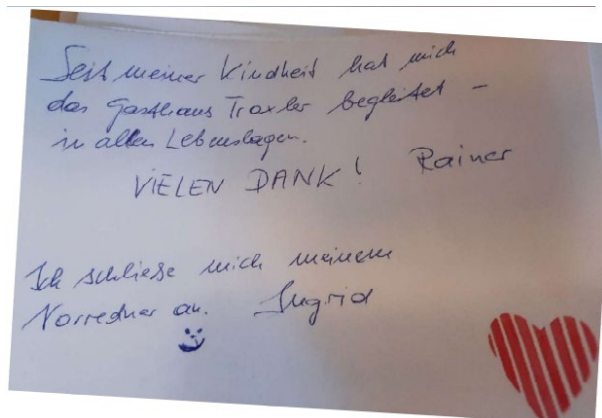 Seit meiner Kindheit hat mich
das Gasthaus Traxler begleitet –
in allen Lebenslagen.
VIELEN DANK! Rainer
Ich schließe mich meinem
Vorredner an. Ingrid